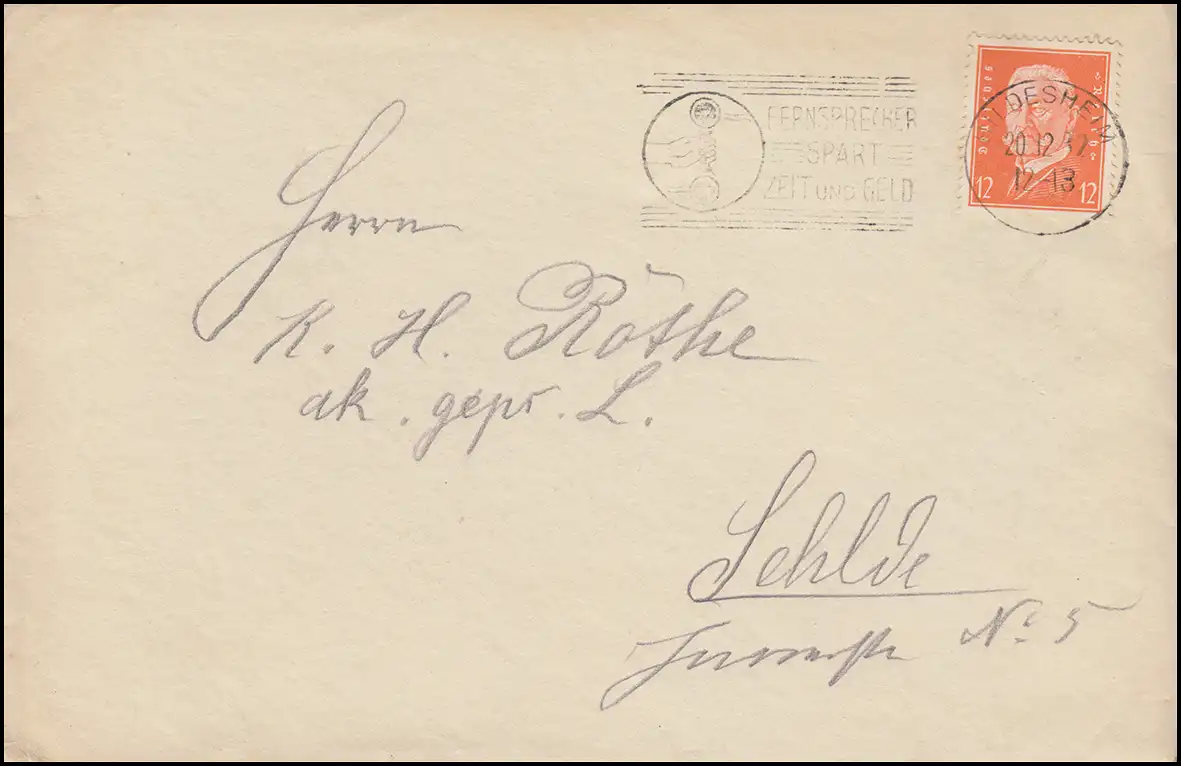 FERNSPRECHER
SPART
ZEIT UND GELD
Deutsches Reich
12 12
LDESHEIM
20.12.32
12-13
Herrn
K. H. Röthe
ak. gepr. L.
Sehlde
No 5